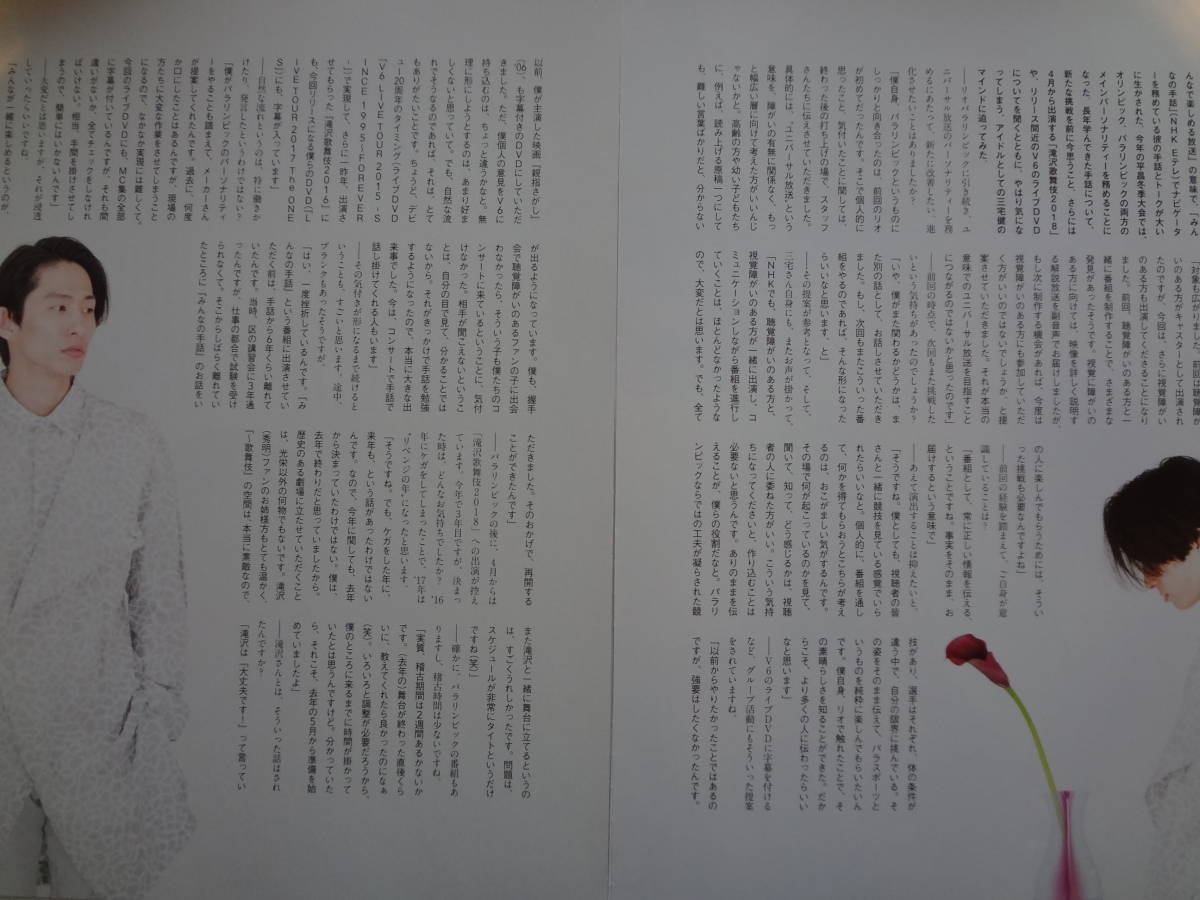 んなで見る放送」の意味で、「みん
なの手話」(NHK Eテレ)でナビゲータ
ーを務めている彼の手話とトークが大い
に生かされた。今年の平昌冬季大会では、
オリンピック、パラリンピックの両方の
メインパーソナリティーを務めることに
なった。長年学んできた手話について、
新たな挑戦を前に今思うこと、さらには
4月から出演する「滝沢歌舞伎2018」
や、リリース間近のV6のライブDVD
についてを聞くとともに、やはり気にな
ってしまう、アイドルとしての三宅健の
マインドに迫ってみた。
――リオパラリンピックに引き続き、ユ
ニバーサル放送のパーソナリティーを務
めるにあたって、新たに改善したい、進
化させたいことはありましたか?
「僕自身、パラリンピックというものに
しっかりと向き合ったのは、前回のリオ
が初めてだったんです。そこで個人的に
思ったこと、気付いたことに関しては、
終わった後の打ち上げの場で、スタッフ
さんたちに伝えさせていただきました。
具体的には、「ユニバーサル放送」という
意味を、障がいの有無に関係なく、もっ
と幅広い層に向けて考えた方がいいんじ
ゃないかと。高齢の方や幼い子どもたち
に、例えば、読み上げる原稿一つにして
も、難しい言葉ばかりだと、分からない。
「対象も広がりましたし、前回は聴覚障が
いのある方がキャスターとして出演され
たのですが、今回は、さらに視覚障がい
のある方も出演してくださることになり
ました。前回、聴覚障がいのある方と一
緒に番組を制作することで、さまざまな
発見があったそうです。視覚に障がいの
ある方に向けては、映像を詳しく説明す
る解説放送を副音声でお届けしましたが、
もし次に制作する機会があれば、今度は
視覚障がいのある方にも参加していただ
く方がいいのではないでしょうか、と提
案させていただきました。それが本当の
意味でのユニバーサル放送を目指すこと
につながるのではないかと思ったのです」
――前回の時点で、次回もまた挑戦した
いという気持ちがあったのでしょうか?
「いや、僕がまた関わるかどうかは、ま
た別の話として、お話しさせていただき
ました。もし、次回もまたこういった番
組をやるのであれば、そんな形になった
らいいなと思います、と」
――その提案が参考となって、そして、
三宅さん自身にも、またお声が掛かって。
「NHKでも、聴覚障がいのある方と、
視覚障がいのある方が一緒に出演し、コ
ミュニケーションしながら番組を進行し
ていくことは、ほとんどなかったような
ので、大変だとは思います。でも、全て
の人に楽しんでもらうためには、そうい
った挑戦も必要なんですよね」
――前回の経験を踏まえて、ご自身が意
識していることは?
「番組として、常に正しい情報を伝える、
ということですね。事実をそのまま、お
届けするという意味で」
――あえて演出することは抑えたいと。
「そうですね。僕としても、視聴者の皆
さんと一緒に競技を見ている感覚でいら
れたらいいなと。個人的に、番組を通し
て、何かを得てもらおうとこちらが考え
るのは、おこがましい気がするんです。
その場で何が起こっているのかを見て、
聞いて、知って、どう感じるかは、視聴
者の人に委ねた方がいい。こういう気持
ちになってくださいと、作り込むことは
必要ないと思うんです。ありのままを伝
えることが、僕らの役割だなと。パラリ
ンピックならではの工夫が凝らされた競
技があり、選手はそれぞれ、体の条件が
違う中で、自分の限界に挑んでいる。そ
の姿をそのまま伝えて、パラスポーツと
いうものを純粋に楽しんでもらいたいん
です。僕自身、リオで触れたことで、そ
の素晴らしさを知ることができた。だか
らこそ、より多くの人に伝わったらいい
なと思います」
――V6のライブDVDに字幕を付ける
など、グループ活動にもそういった提案
をされていますね。
「以前からやりたかったことではあるの
ですが、強要はしたくなかったんです。
以前、僕が主演した映画『親指さがし』
('06)も字幕付きのDVDにしていただ
きました。ただ、僕個人の意見をV6に
持ち込むのは、ちょっと違うかなと。無
理に形にしようとするのは、あまり好ま
しくないと思っていて。でも、自然な流
れでそうなるのであれば、それは、とて
もありがたいことです。ちょうど、デビ
ュー20周年のタイミング(ライブDVD
『V6 LIVE TOUR 2015 -S
INCE 1995~FOREVER
-』)で実現して、さらに一昨年、出演さ
せてもらった『滝沢歌舞伎2016』に
も、今回リリースになる僕らのDVD(『L
IVE TOUR 2017 The ONE
S』)にも、字幕が入っています」
――自然な流れというのは、特に働きか
けたり、発言したというわけではない?
「僕がパラリンピックのパーソナリティ
ーをやることも踏まえて、メーカーさん
が提案してくれたんです。過去に、何度
か口にしたことはあるんですが、現場の
方たちに大変な作業をさせてしまうこと
になるので、なかなか実現には難しくて。
今回のライブDVDにも、MC集の全部
に字幕が付いているんですが、それも間
違いがないか、全てチェックをしなけれ
ばいけない。相当、手間を掛けさせてし
まうので、簡単にはいかないんです」
――大変だとは思いますが、それが浸透
していったらいいですね。
「みんなが一緒に楽しめるというのが、
が出るようになっています。僕も、握手
会で聴覚障がいのあるファンの子に出会
わなかったら、そういう子も僕たちのコ
ンサートに来ているということに、気付
けなかった。相手が聞こえないというこ
とは、自分の目で見て、分かることでは
ないから。それがきっかけで手話を勉強
するようになったので、本当に大きな出
来事でした。今は、コンサートで手話で
話し掛けてくれる人もいます」
――その気付きが形になるまで続けると
いうことも、すごいと思います。途中、
ブランクもあったそうですが。
「はい、一度挫折しているんです。『み
んなの手話』という番組に出演させてい
ただく前は、手話から6年くらい離れて
いたんです。当時、区の講習会に3年通
ったんですが、仕事の都合で試験を受け
られなくて。そこからしばらく離れてい
たところに『みんなの手話』のお話をい
ただきました。そのおかげで、再開する
ことができたんです」
――パラリンピックの後に、4月からは
『滝沢歌舞伎2018』への出演が控え
ています。今年で3年目ですが、決まっ
た時は、どんなお気持ちでしたか? '16
年にケガをしてしまったことで、'17年は
"リベンジの年"になったと思います。
「そうですね。でも、ケガをした年に、
来年も、という話があったわけではない
んです。なので、今年に関しても、去年
から決まっていたわけではない。僕は、
去年で終わりだと思っていましたから。
歴史のある劇場に立たせていただくこと
は、光栄以外の何物でもないです。滝沢
(秀明)ファンのお姉様方もとても温かく、
『~歌舞伎』の空間は、本当に素敵なので、
また滝沢と一緒に舞台に立てるというの
は、すごくうれしかったです。問題は、
スケジュールが非常にタイトというだけ
ですね(笑)」
――確かに、パラリンピックの番組もあ
りますし、稽古時間は少ないですね。
「実質、稽古期間は2週間あるかないか
です。(去年の)舞台が終わった直後くら
いに、教えてくれたら良かったのになぁ
(笑)。いろいろと調整が必要だろうから、
僕のところに来るまでに時間が掛かって
いたとは思うんですけど。分かっていた
ら、それこそ、去年の5月から準備を始
めていましたよ」
――滝沢さんとは、そういった話はされ
たんですか?
「滝沢は「大丈夫です!」って言ってい